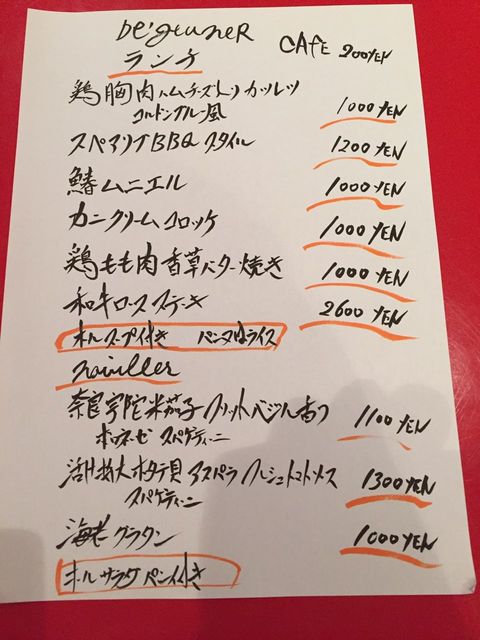 De'jeuneR
ランチ CAFE 200YEN
鶏胸肉ハムチーズ入りカツレツ
コルドンブルー風 1000 YEN
スペアリブBBQスタイル 1200 YEN
鰆ムニエル 1000 YEN
カニクリームコロッケ 1000 YEN
鶏もも肉香草バター焼き 1000 YEN
和牛ロースステーキ 2600 YEN
スープ付き パン又はライス
奈良宇陀米茄子フリットバジル香り 1100 YEN
ボロネーゼ スパゲティーニ
活け帆大ホタテ貝 アスパラ フレッシュトマトソース 1300 YEN
スパゲティーニ
海老グラタン 1000 YEN
サラダ パン付き